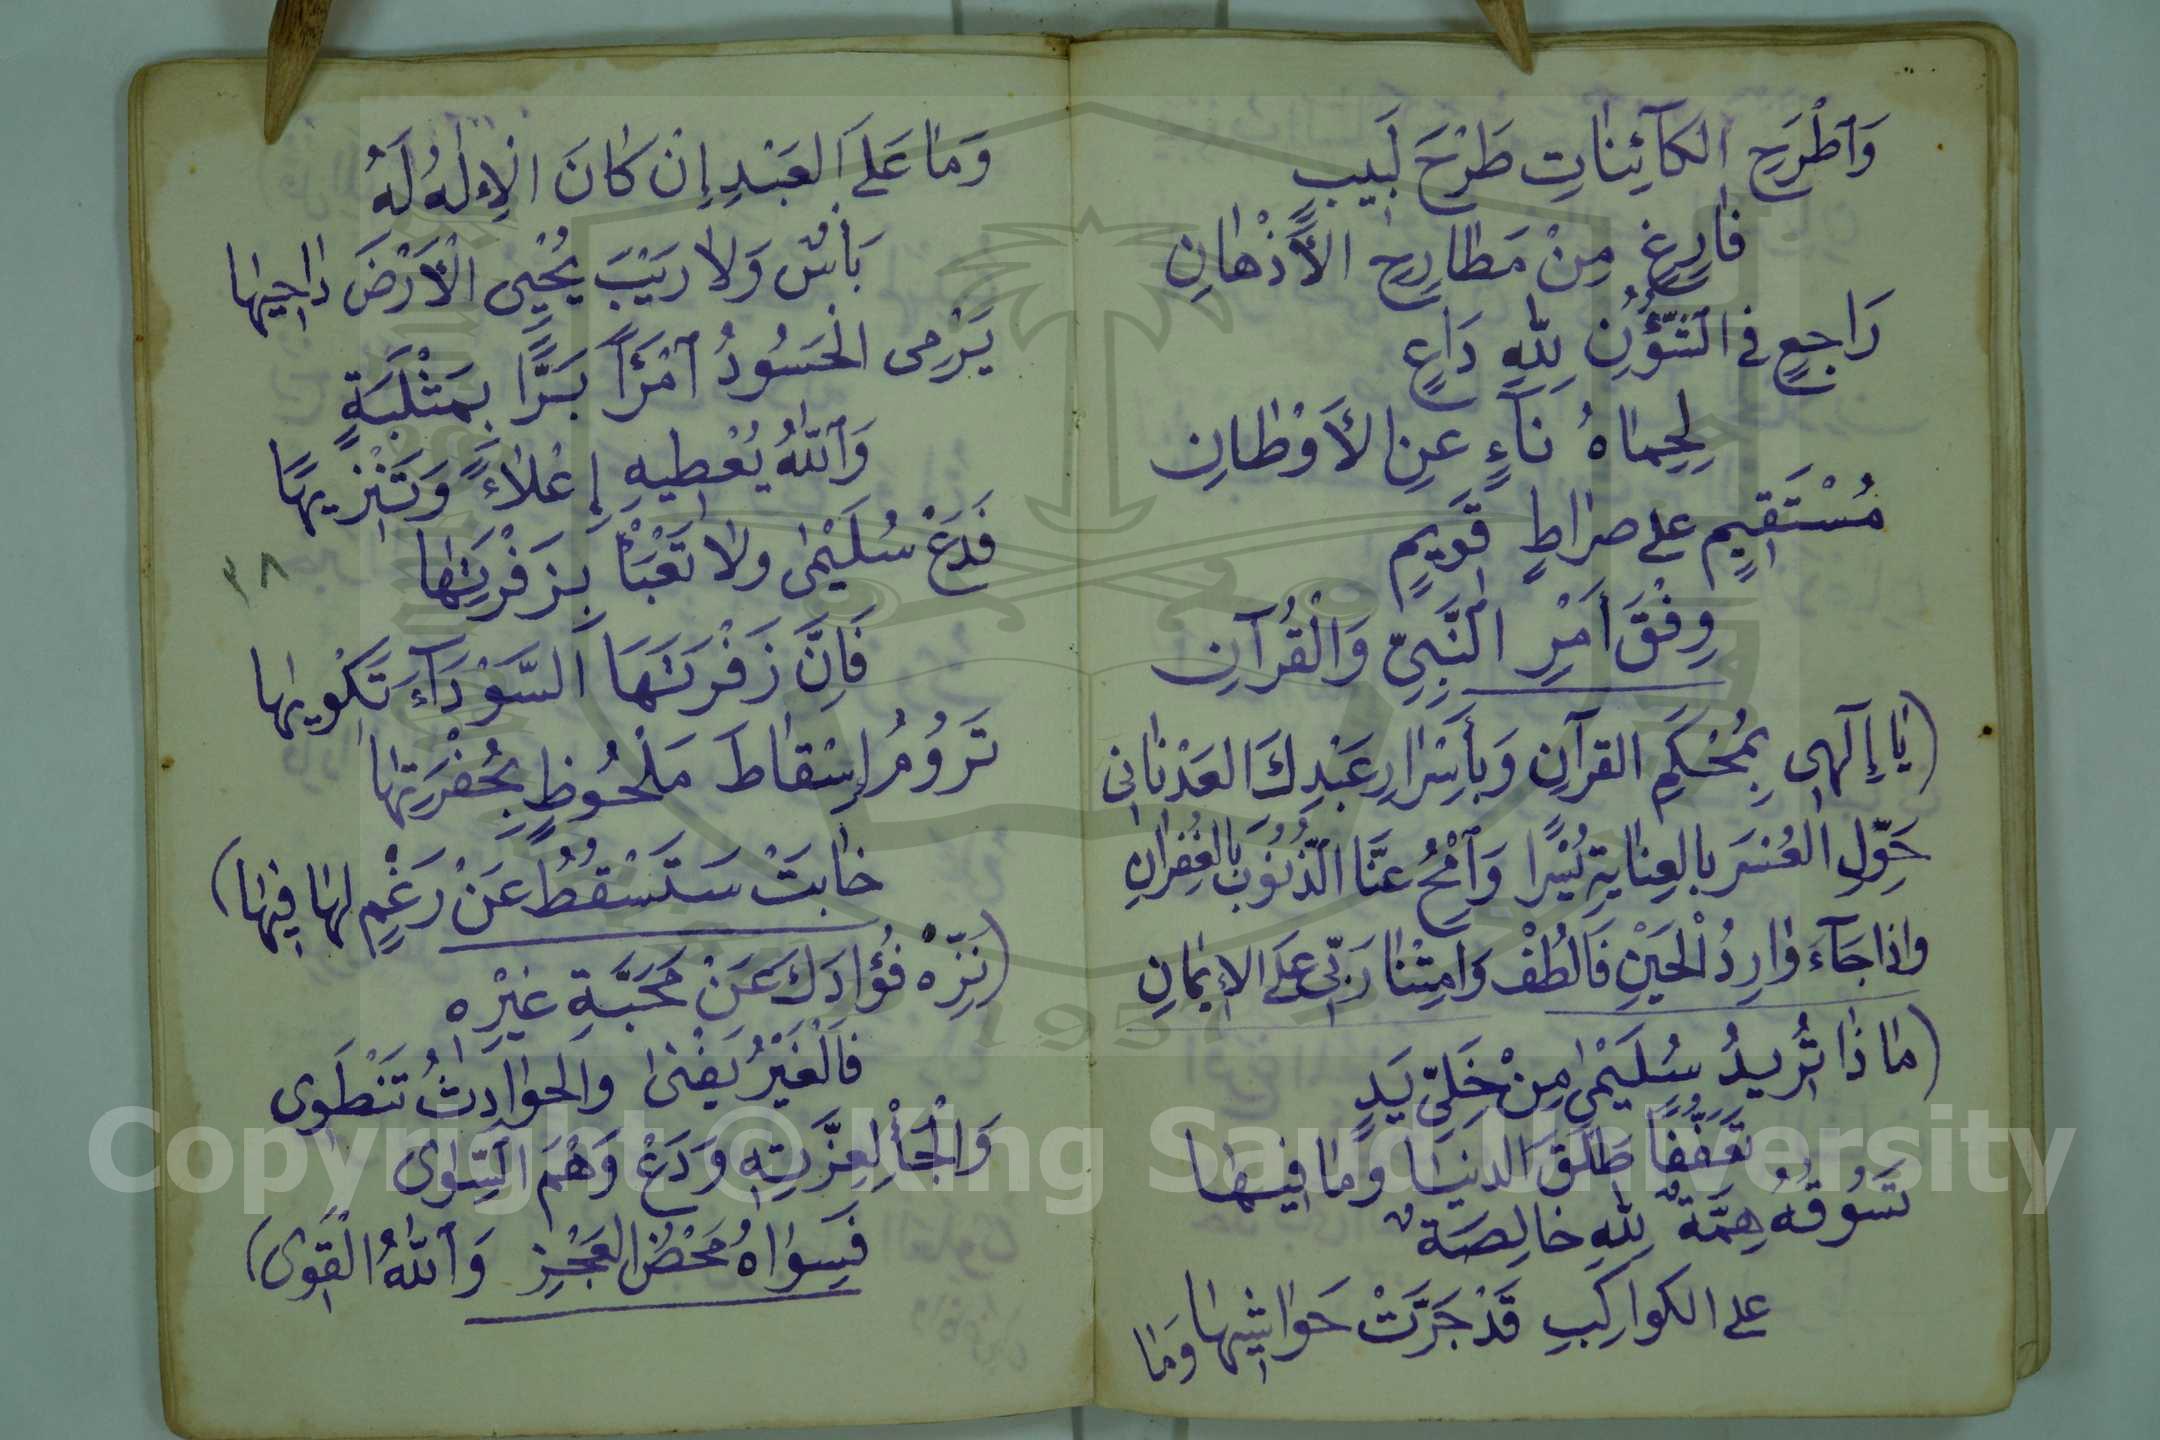 وَٱطْرَحِ الكآئِنٰاتِ طَرْحَ لَبِيبٍ
فٰارِغٍ مِنْ مَطٰارِحِ الأَذْهٰانِ
رَاجِعٍ في الشُّؤُنِ لِلّٰهِ دَاعٍ
لِحِمٰاهُ نَآءٍ عَنِ الأَوْطٰانِ
مُسْتَقِيمٍ على صرٰاطٍ قَوِيمٍ
وِفْقَ أَمْرِ النَّبِيِّ وَالْقُرآنِ
(يٰا إِلٓهِى بِمُحْكَمِ القرآنِ وَبِأَسْرٰارِ عَبْدِكَ العَدْنٰانِى
حَوِّلِ العُسْرَ بالعِنٰايَةِ يُسْرًا وَٱمْحُ عَنَّا الذُّنُوبَ بِالغُفرٰانِ
واذا جَآءَ وٰارِدُ الْحَيْنِ فَالْطُفْ وَامِتْنٰا رَبِّى عَلَى الإِيمٰانِ
(مٰا ذٰا تُرِيدُ سُلَيْمٰى مِنْ خَلِىِّ يَدٍ
تَعَفُّفًا طَلَّقَ الدنْيٰا وَمٰا فِيهٰا
تَسُوقُهُ هِمَّةٌ لِلّٰهِ خٰالِصَةٌ
على الكواكِبِ قَدْ جَرَّتْ حَوٰاشِيهٰا
وَمٰا
وَمٰا عَلَى العَبْدِ إِنْ كٰانَ الْإِلٰهُ لَهُ
بَأْسٌ وَلا رَيْبَ يُحْيِى الْأَرْضَ دٰاحِيهٰا
يَرْمِى الْحَسُودُ ٱمْرَأً بَرًّا بِمَثْلَبَةٍ
وَٱللّٰهُ يُعْطِيهِ إِعْلٰاءً وَتَنْزِيهًا
فَدَعْ سُلَيْمٰى ولا تَعْبَأْ بِزَفْرَتِهٰا
فَاِنَّ زَفْرَتَهَا السَّوْدَآءَ تَكْوِيهٰا
تَرُومُ إِسْقٰاطَ مَلْحُوظٍ بِحُفْرَتِهٰا
خٰابَتْ سَتَسْقُطُ عَنْ رَغْمٍ لهٰا فِيهٰا)
٢٨
(نَزِّهْ فُؤَادَكَ عَنْ مَحَبَّةِ غَيْرِه
فَالْغَيْرُ يَفْنٰى وَالحوٰادِثُ تَنْطَوِى
وَالْجَأْ لِعِزَّتِهِ وَدَعْ وَهْمَ السِّوٰى
فَسِوٰاهُ مَحْضُ العَجْزِ وَٱللّٰهُ الْقَوِى)
Copyright © King Saud University
1957